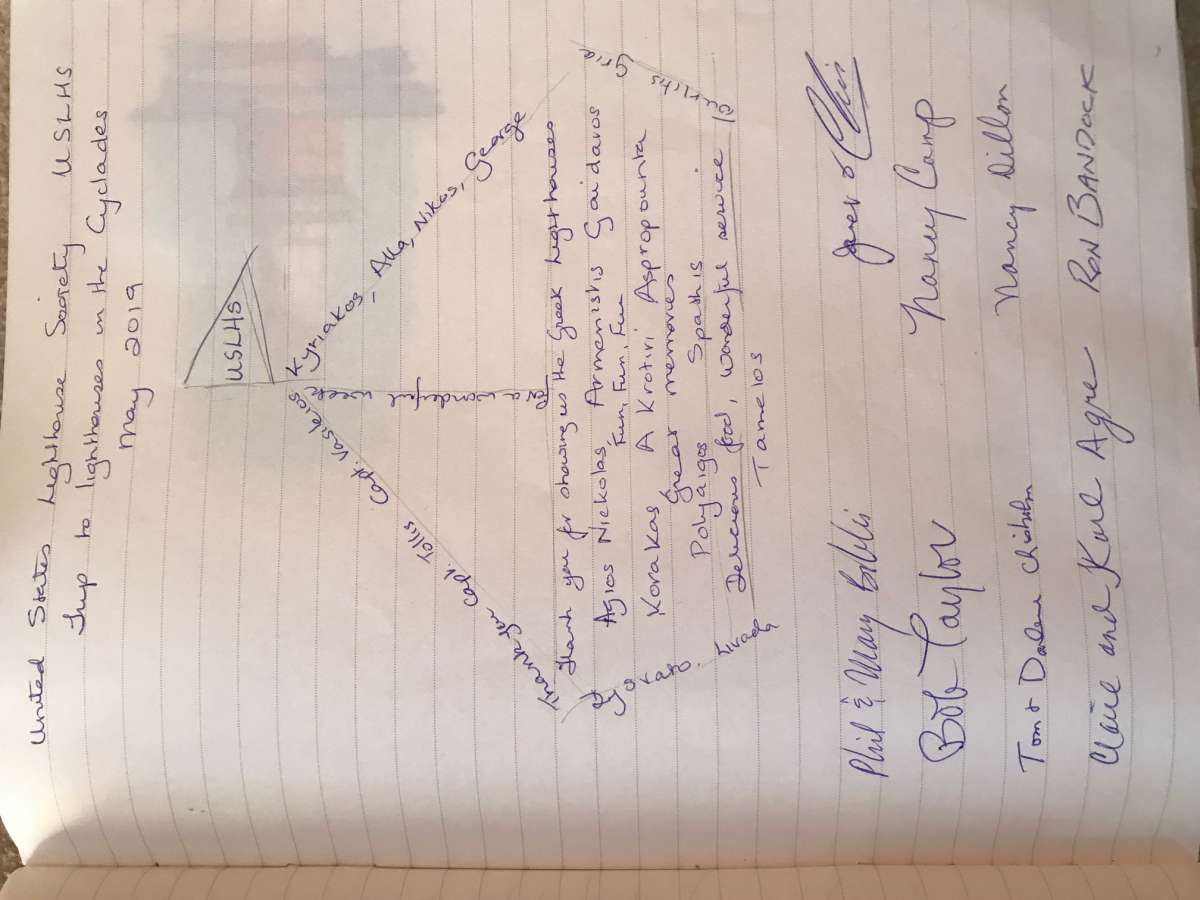 United States Lighthouse Society USLHS
Trip to lighthouses in the Cyclades
May 2019
USLHS
Kyriakos - Alka, Nikos, George
Capt Vasileros
Capt. Tollis
Thank you for
a wonderful week
Thank you for showing us the Greek lighthouses
Agios Nickolas, Armenistis Gaidaros
Fun, Fun, Fun
Korakas A Krotiri Aspropounta
Great memories
Polyaigos Spathis
Delicious food, wonderful service
Tamelos
Phil & Mary Biblis
Janet & Chris
Bob Taylor
Nancy Camp
Tom & Darlene Chisholm
Nancy Dillon
Claire and Karl Agre
RON BANDOCK